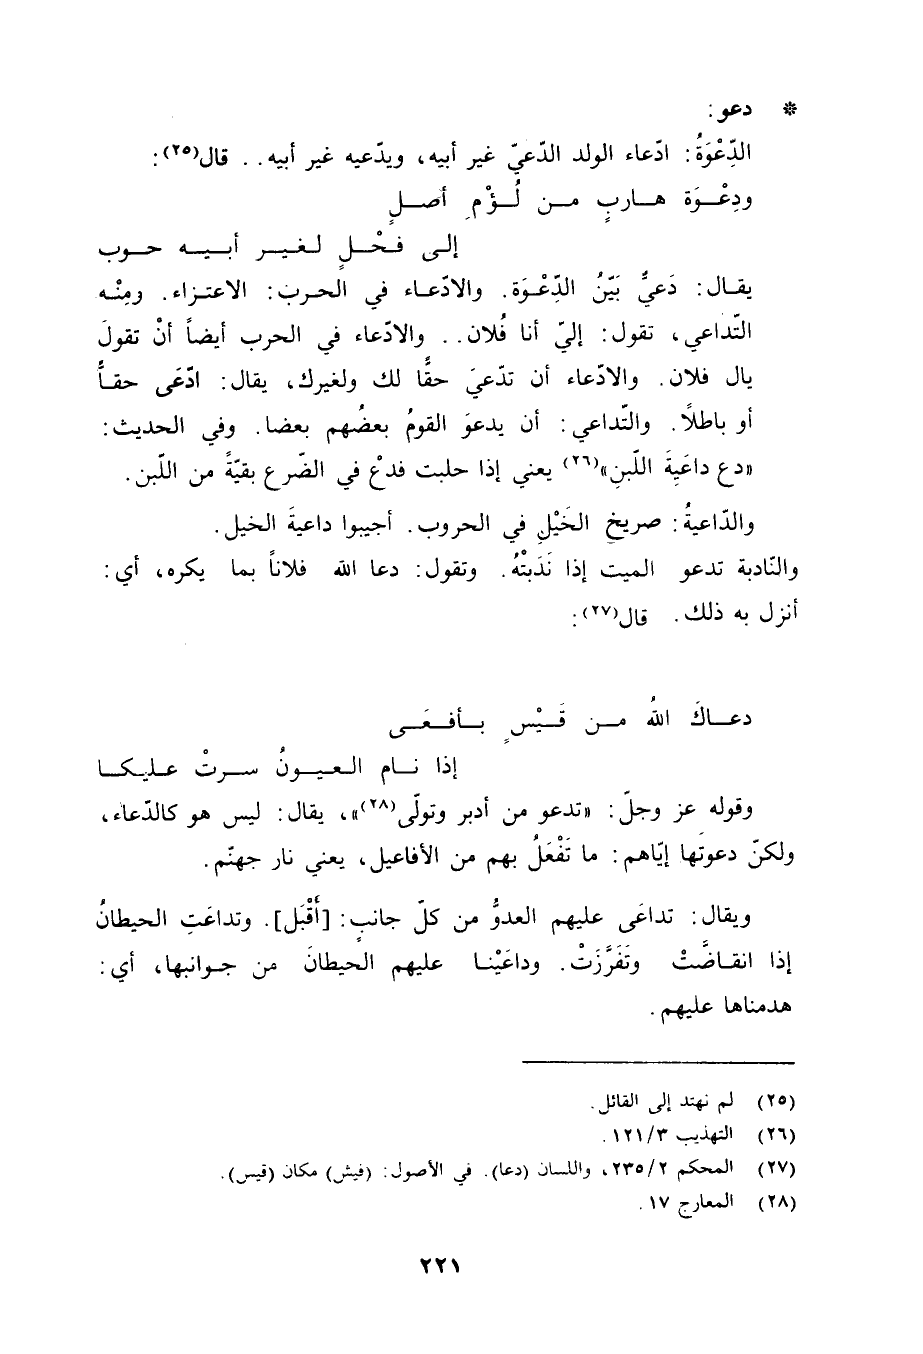 * دعو :
الدِّعْوَةُ : ادّعاء الولد الدّعيّ غير أبيه، ويدّعيه غير أبيه . . قال(٢٥) :
ودِعْـوَة هـاربٍ مـن لُـؤْمِ أصـلٍ
إلى فحْـلٍ لغـيـر أبـيـه حـوب
يقـال : دَعيٌّ بَيّنُ الدِّعْـوَة . والادّعـاء في الحـرب : الاعتـزاء . ومِنْـه
التّداعي، تقول : إليّ أنا فُلان . . والادّعاء في الحرب أيضاً أنْ تقولَ
يال فلان . والادّعاء أن تدّعيَ حقًّا لك ولغيرك، يقال : ادّعَى حقـاًّ
أو باطلاً . والتّداعي : أن يدعوَ القومُ بعضُهم بعضا . وفي الحديث :
«دع داعَيِةَ اللّبنِ»(٢٦) يعني إذا حلبت فدعْ في الضّرع بقيّةً من اللّبن .
والدّاعيةُ : صريخ الخَيْلِ في الحروب . أجيبوا داعيةَ الخيل .
والنّادبة تدعو الميت إذا نَدَبتْهُ . وتقول : دعا الله فلاناً بما يكره، أي :
أنزل به ذلك . قال(٢٧) :
دعـاكَ اللهُ مـن قَـيْسٍ بـأفـعَـى
إذا نـام العـيـونُ سـرتْ عليكـا
وقوله عز وجلّ : «تدعو من أدبر وتولّى(٢٨)»، يقال : ليس هو كالدّعاء،
ولكنّ دعوتَها إيّاهم : ما تَفْعَلُ بهم من الأفاعيل، يعني نار جهنّم .
ويقال : تداعَى عليهم العدوُّ من كلّ جانبٍ : [أَقْبَل] . وتداعَتِ الحيطانُ
إذا انقـاضَّتْ وتَفَرَّزَتْ . وداعَيْنـا عليهم الحيطانَ من جـوانبها، أي :
هدمناها عليهم .
(٢٥) لم نهتد إلى القائل .
(٢٦) التهذيب ١٢١/٣ .
(٢٧) المحكم ٢٣٥/٢، واللسان (دعا) . في الأصول : (فيش) مكان (قيس) .
(٢٨) المعارج ١٧ .
٢٢١